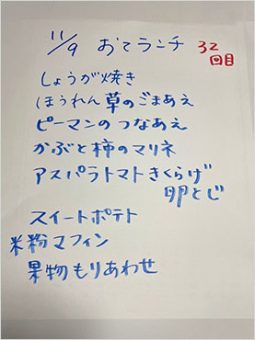 11/9 おてランチ 32回目
しょうが焼き
ほうれん草のごまあえ
ピーマンのつなあえ
かぶと柿のマリネ
アスパラトマトきくらげ
卵とじ
スイートポテト
米粉マフィン
果物もりあわせ